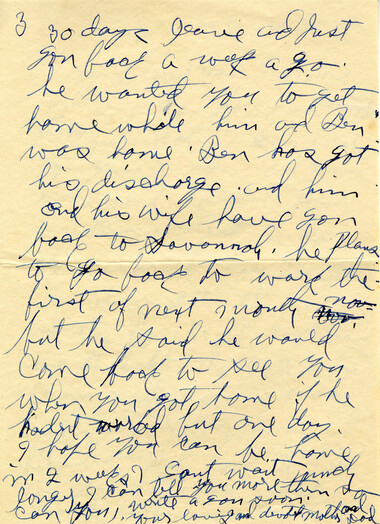 3 30 days leave ad Just
gon back a week ago.
he wanted you to get
home while him ad Ben
was home. Ben has got
his discharge. ad him
and his wife have gon
back to Savannah. he Plans
to go back to work the
first of next month
but he said he would
Come back to see you
when you got home if he
hadent worked but one day.
I hope you can be home
in 2 weeks? I Cant wait much
longer, I can tell you more then I
can you, write a gon soon.
your loving an devoted mother ad dad